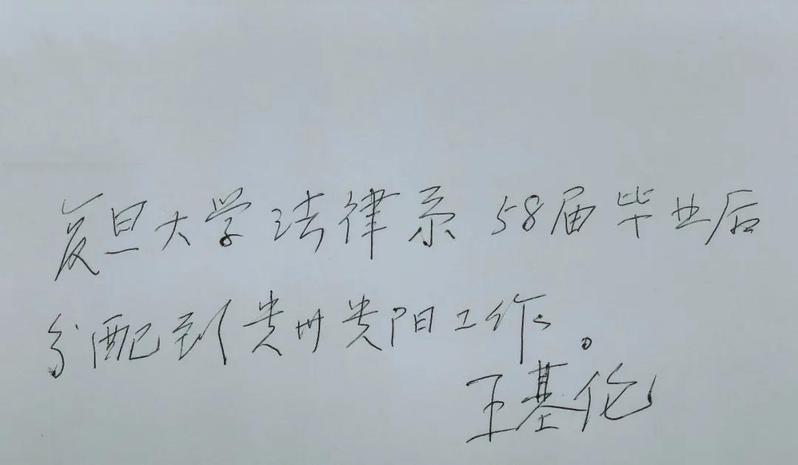 复旦大学法律系58届毕业后
分配到贵州贵阳工作。
王基伦